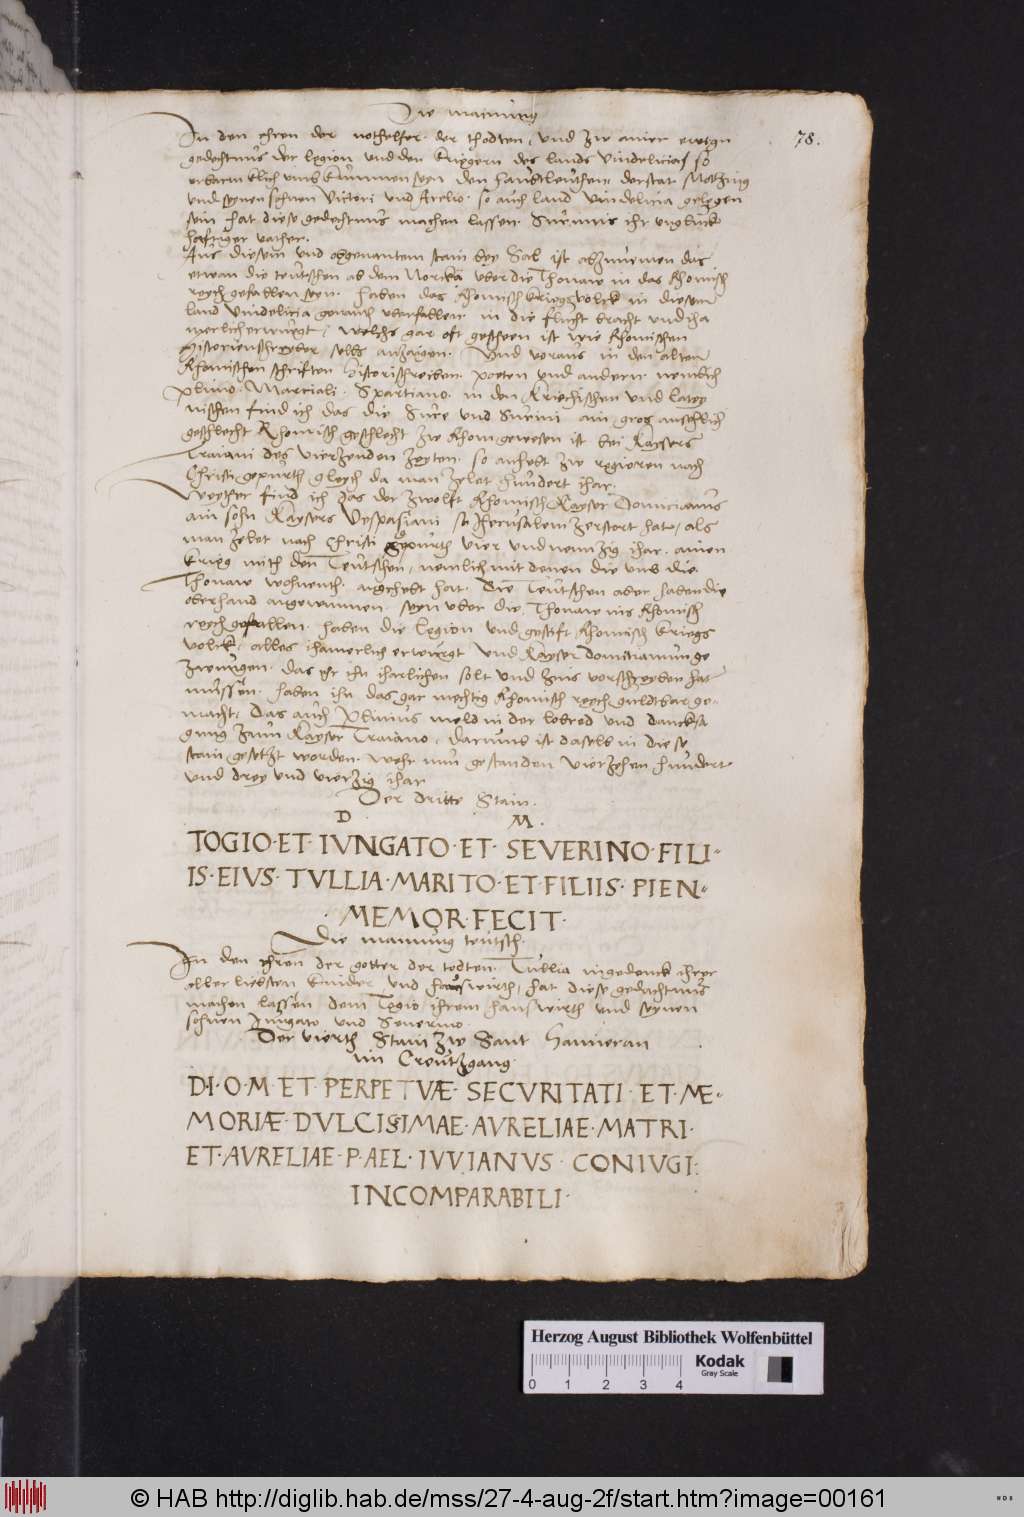 Die mainung
78.
In den ehren der nothelfer der thodten, und zw ainer ewign
gedechtnus der legion und den kriegern des lands Vindelicias so
erbarmklich umbkummen seyn den haubtleuthen
und seynen söhnen Victori und Aurelio so auch land Vindelicia gelegen
sein hat diese gedechtnus machen lassen Surinus ihr unglück
haftiger vather.
Aus diesem und obgenantem stain bey Sal ist abzunemen das
etwan die teutschen ab dem Norcka uber die Thonaw in das Rhomisch
reych gefallen seyn. haben das Rhomisch kriegsvolck in diesem
land Vindelicia genant uberfallen in die flucht bracht und iha
merlich erwürgt, welchs gar oft gescheen ist wie Rhomischen
Historienschreyber selbs anzaigen. Und voraus in den alten
Rhomischen schriften historischreiben poeten und andern nemlich
Plinio. Martiali. Spartiano. in den Kriechischen und latey
nischen find ich das die Sure und Surini ain gros ansehlich
geschlecht Rhomisch geschlecht zw Rhom gewesen ist bei Kaysers
Traiani des vierzenden zeyten. so anhebt zw regieren nach
Christi gepurth gleych da man zelet hundert ihar.
Weyther find ich das der zwolft Rhomisch Kayser Domicianus
ain sohn Kaysers Vespasiani so Jherusalem zerstort hat, als
man zelet nach Christi gepurth vier und neunzig ihar. ainen
krieg mith den Teutschen, nemlich mit denen die umb die
Thonaw wohnenth. angehebt hat. Die Teutschen aber haben die
oberhand angewunnen. seyn uber die Thonaw ins Rhomisch
reych gefallen. haben die legion und gestift Rhomisch kriegs
volck, alles ihamerlich erwürgt und Kayser Domicianum ge
zwungen. das er ihn iharlichen solt und zins verschreyben hat
müssen. haben ihn das gar mechtig Rhomisch reych zinsbar ge-
macht. Das auch Plinius meld in der lobred und dancksa
gung zum Kayser Traiano. Darumb ist daselb in diese
stain gesetzt worden. Wehr nun gestanden vierzehen hundert
und drey und vierzig ihar
Der dritte Stain.
D M.
TOGIO·ET·IVNGATO·ET·SEVERINO·FILI-
IS·EIVS·TVLLIA·MARITO·ET·FILIIS·PIEN-
·MEMOR·FECIT·
Die mainung teutsch.
In den ehren der gotter der todten. Tullia ingedenck ihrer
allerliebsten kinder und hauswirth, hat diese gedachtnus
machen lassen dem Togio, ihrem hauswirth und seynen
söhnen Jungato und Severino
Der vierth Stain zw Sant Haimeran
im Creutzgang.
D·I·O·M·ET PERPETVÆ·SECVRITATI·ET·ME-
MORIÆ·DVLCISIMAE·AVRELIAE·MATRI·
ET·AVRELIAE·P·AEL·IVVIANVS·CONIVGI:
INCOMPARABILI·
Herzog August Bibliothek Wolfenbüttel
0 1 2 3 4
Kodak
Gray Scale
© HAB http://diglib.hab.de/mss/27-4-aug-2f/start.htm?image=00161